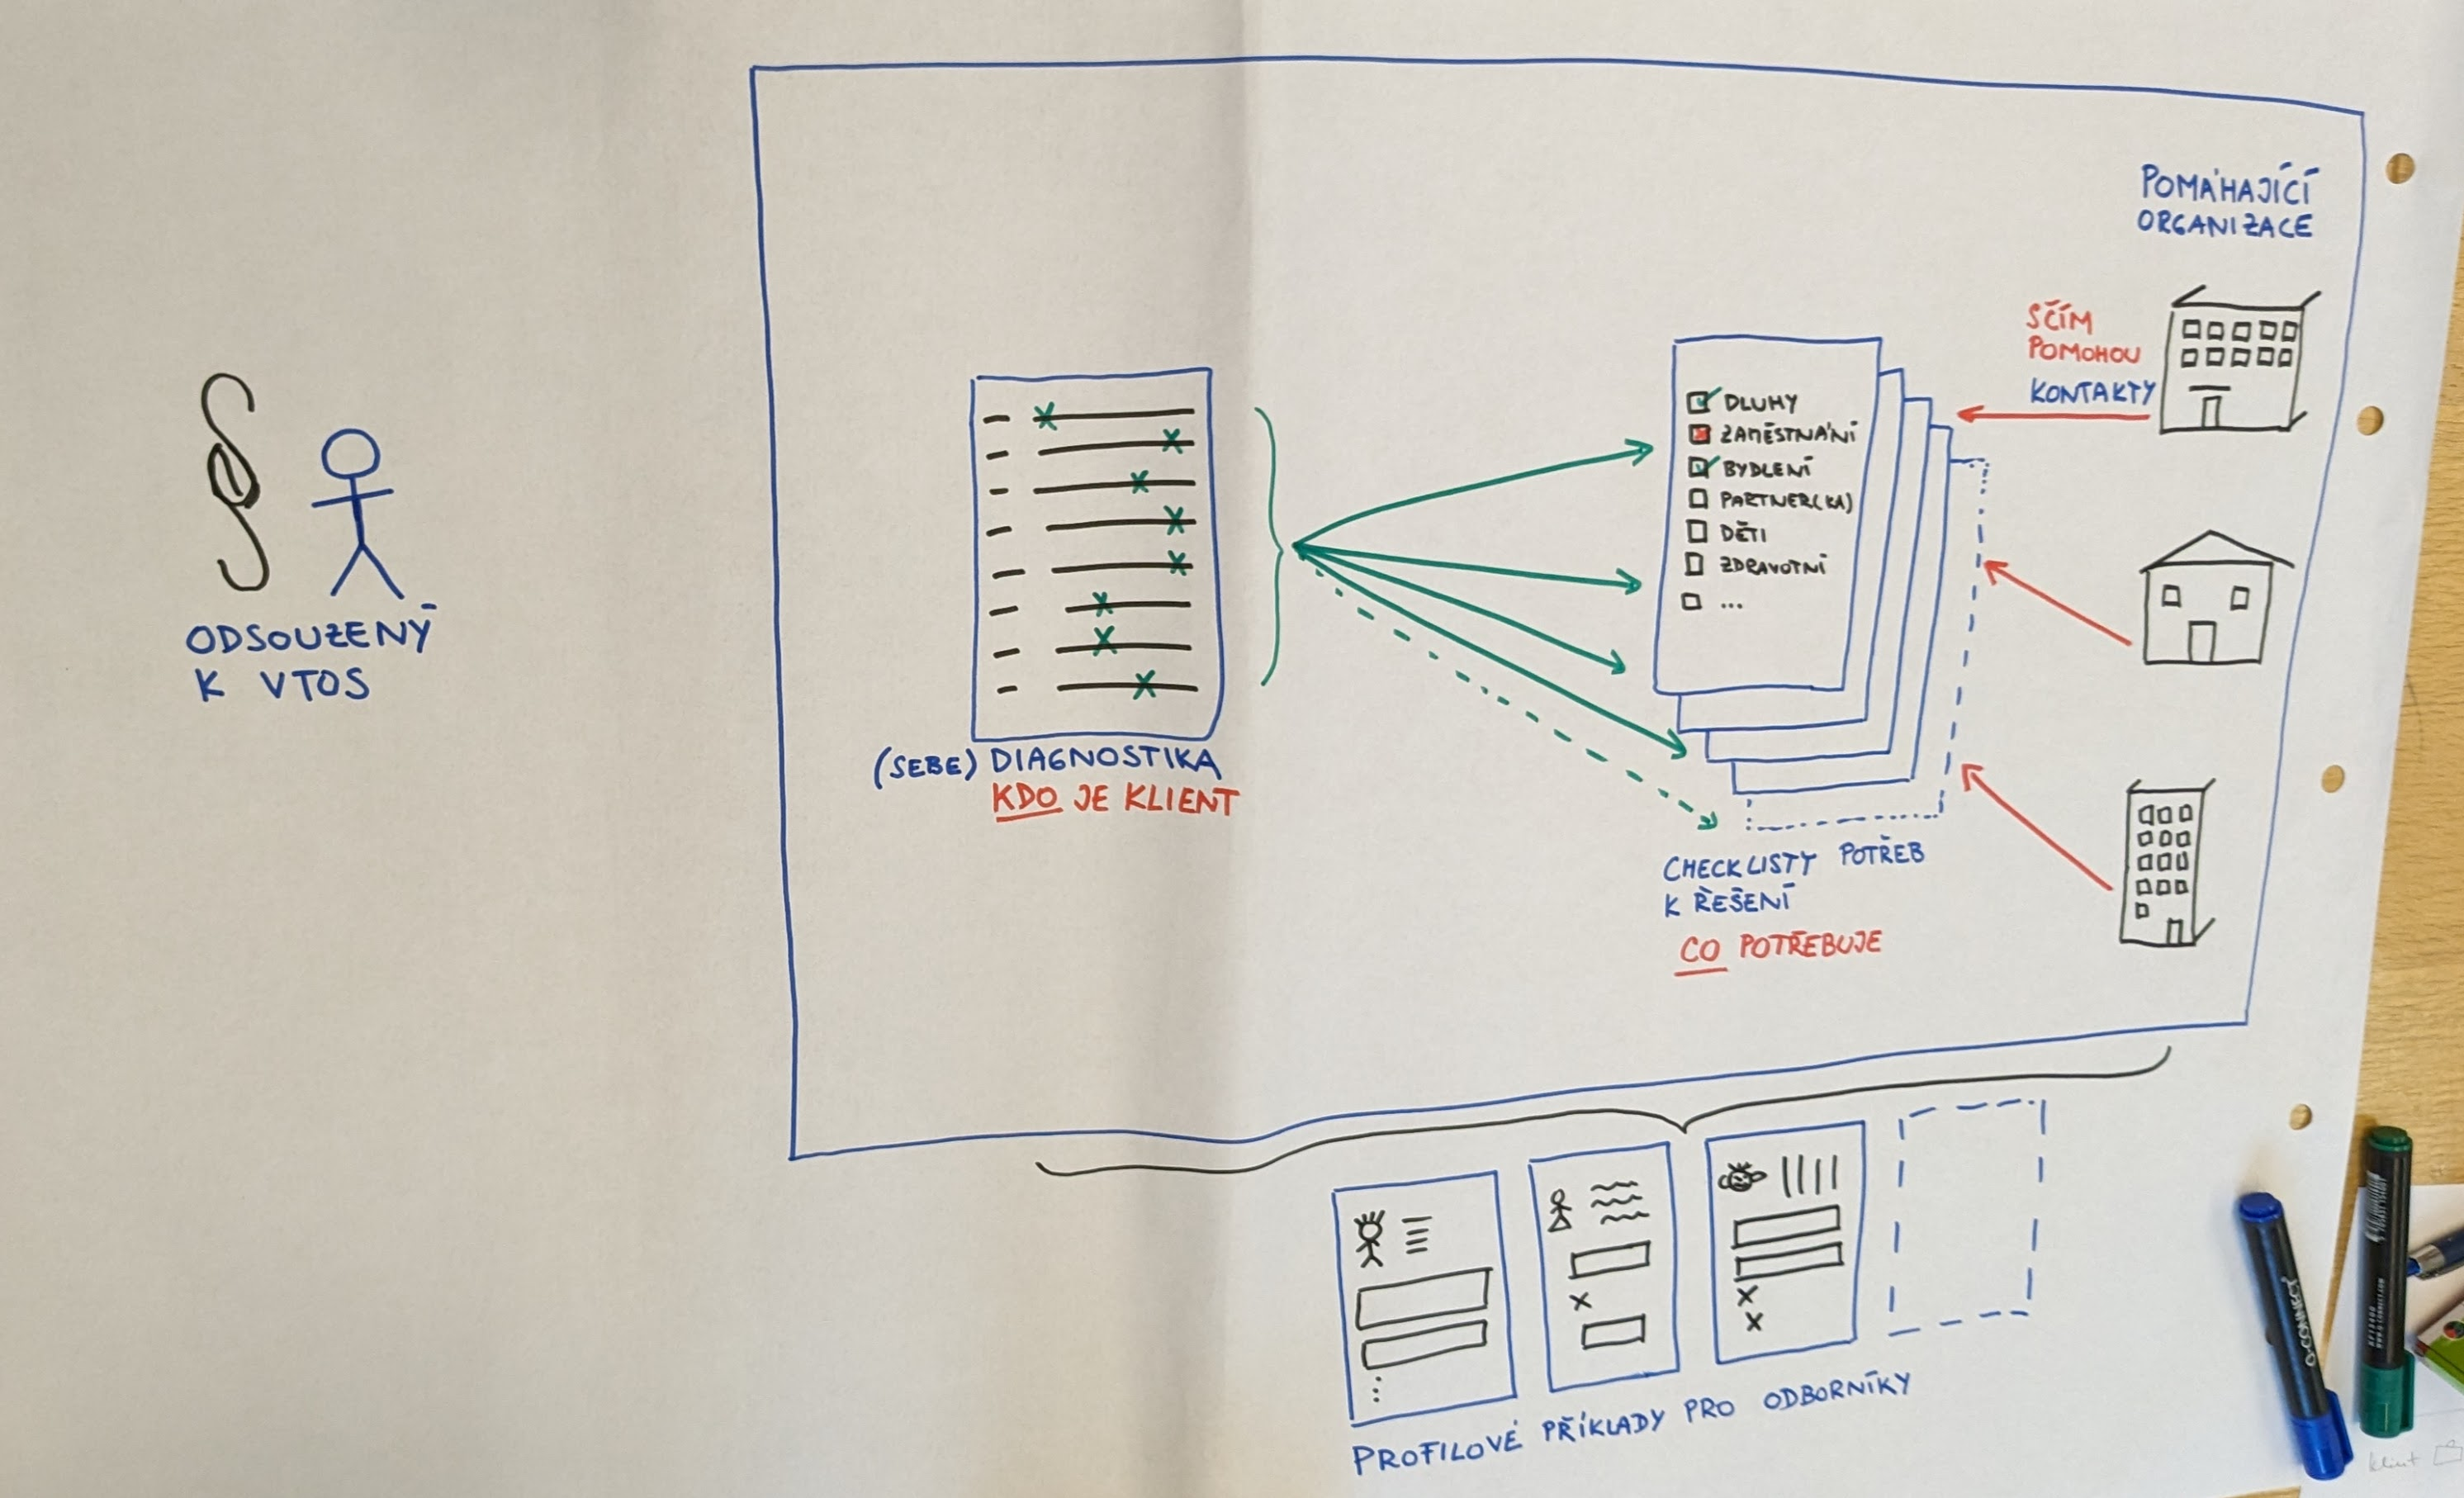 ODSOUZENÝ
K VTOS
(SEBE) DIAGNOSTIKA
KDO JE KLIENT
DLUHY
ZAMĚSTNÁNÍ
BYDLENÍ
PARTNER(KA)
DĚTI
ZDRAVOTNÍ
...
CHECKLISTY POTŘEB
K ŘEŠENÍ
CO POTŘEBUJE
POMÁHAJÍCÍ
ORGANIZACE
SČÍM
POMOHOU
KONTAKTY
PROFILOVÉ PŘÍKLADY PRO ODBORNÍKY
Q-CONNECT
klient